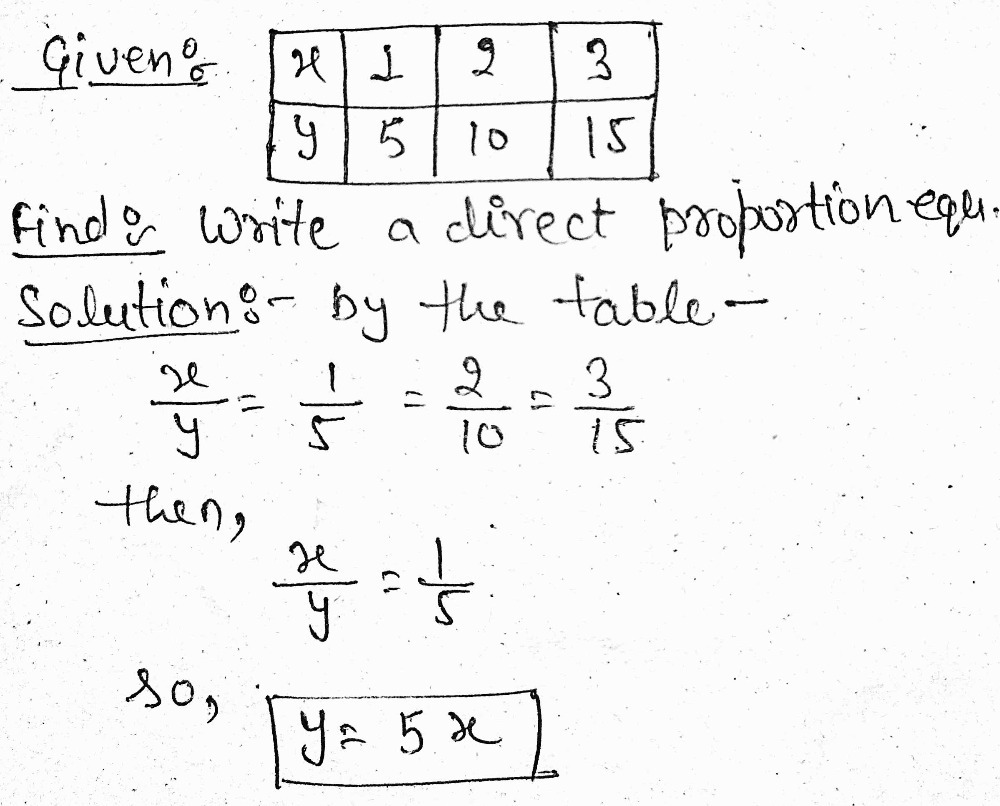 Given:
x 1 2 3
y 5 10 15
Find: Write a direct proportion equ.
Solution:- By the table -
x/y = 1/5 = 2/10 = 3/15
then,
x/y = 1/5
so,
y = 5x